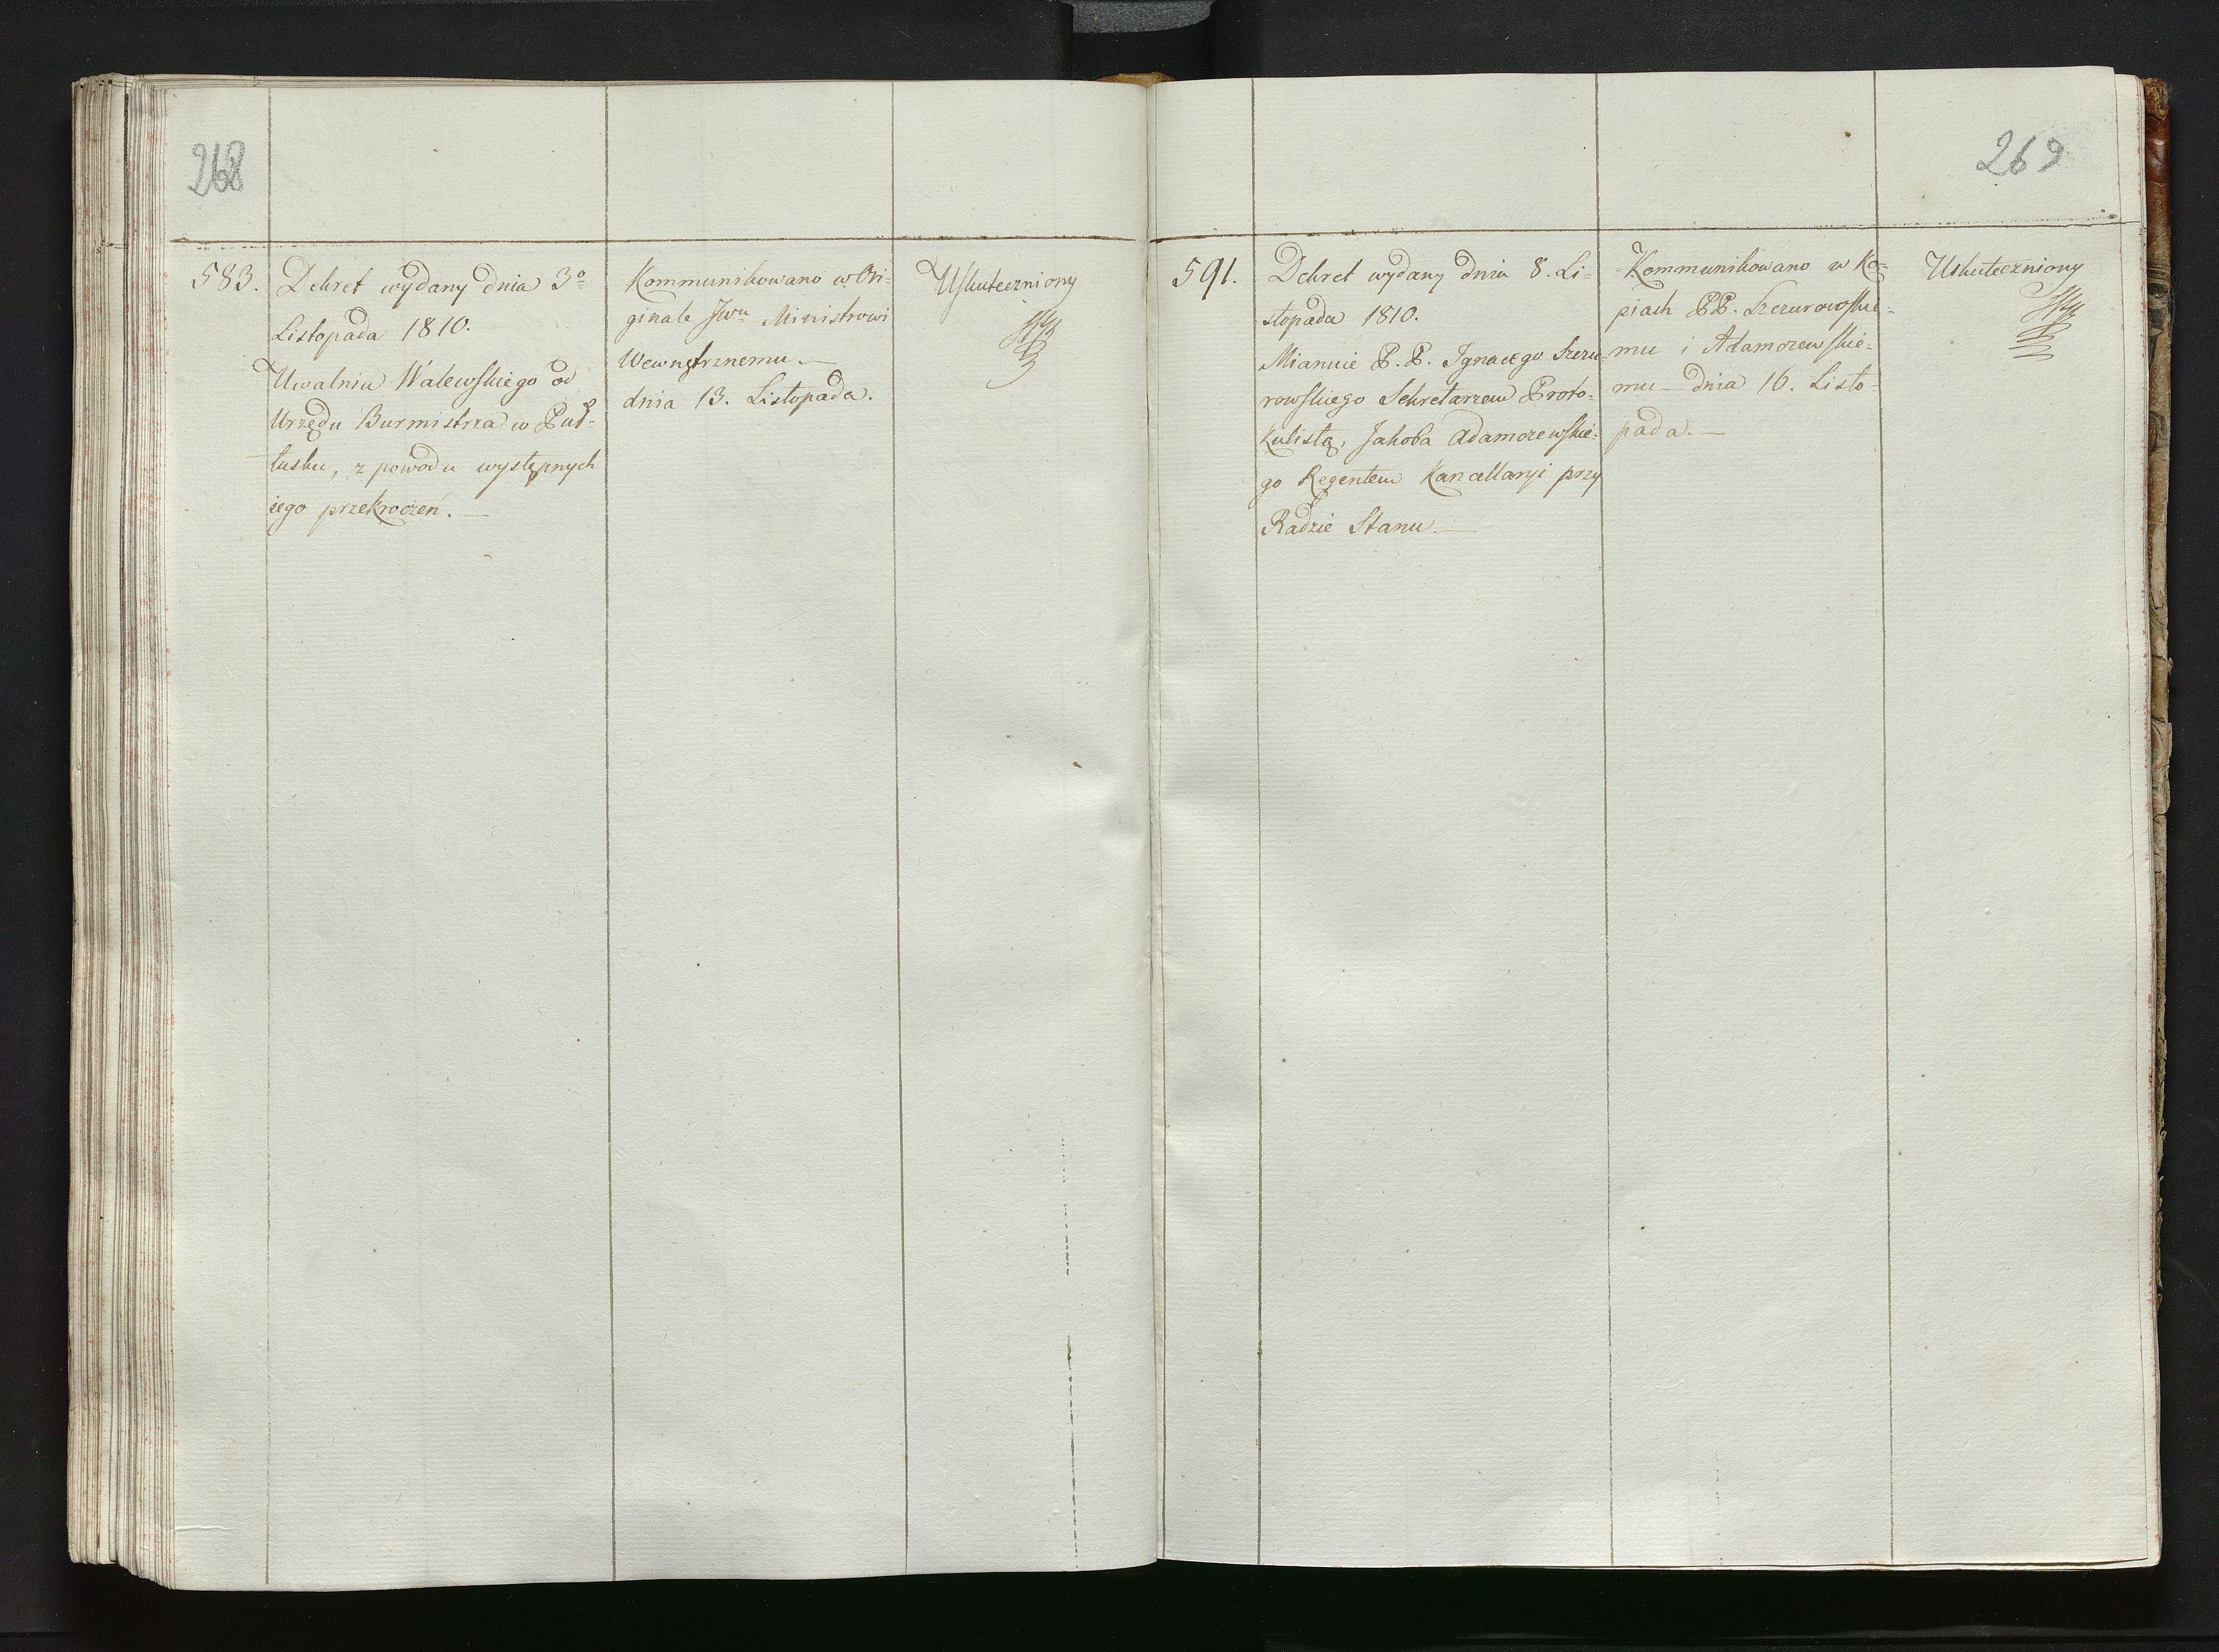 268
583.
Dekret wydany dnia 3º
Listopada 1810.
Uwalnia Walewskiego od
Urzędu Burmistrza w Puł-
tusku, z powodu występnych
iego przekroczeń. —
Kommunikowano w Ori-
ginale Jwu Ministrowi
Wewnętrznemu. —
dnia 13. Listopada.
Uskuteczniony
269
591.
Dekret wydany dnia 8. Li-
stopada 1810.
Mianuie P. P. Ignacego Szczu-
rowskiego Sekretarzem Proto-
kulistą, Jakoba Adamczewskie-
go Regentem Kancellaryi przy
Radzie Stanu. —
Kommunikowano w Ko-
piach PP. Szczurowskie-
mu i Adamczewskie-
mu — dnia 16. Listo-
pada. —
Uskuteczniony